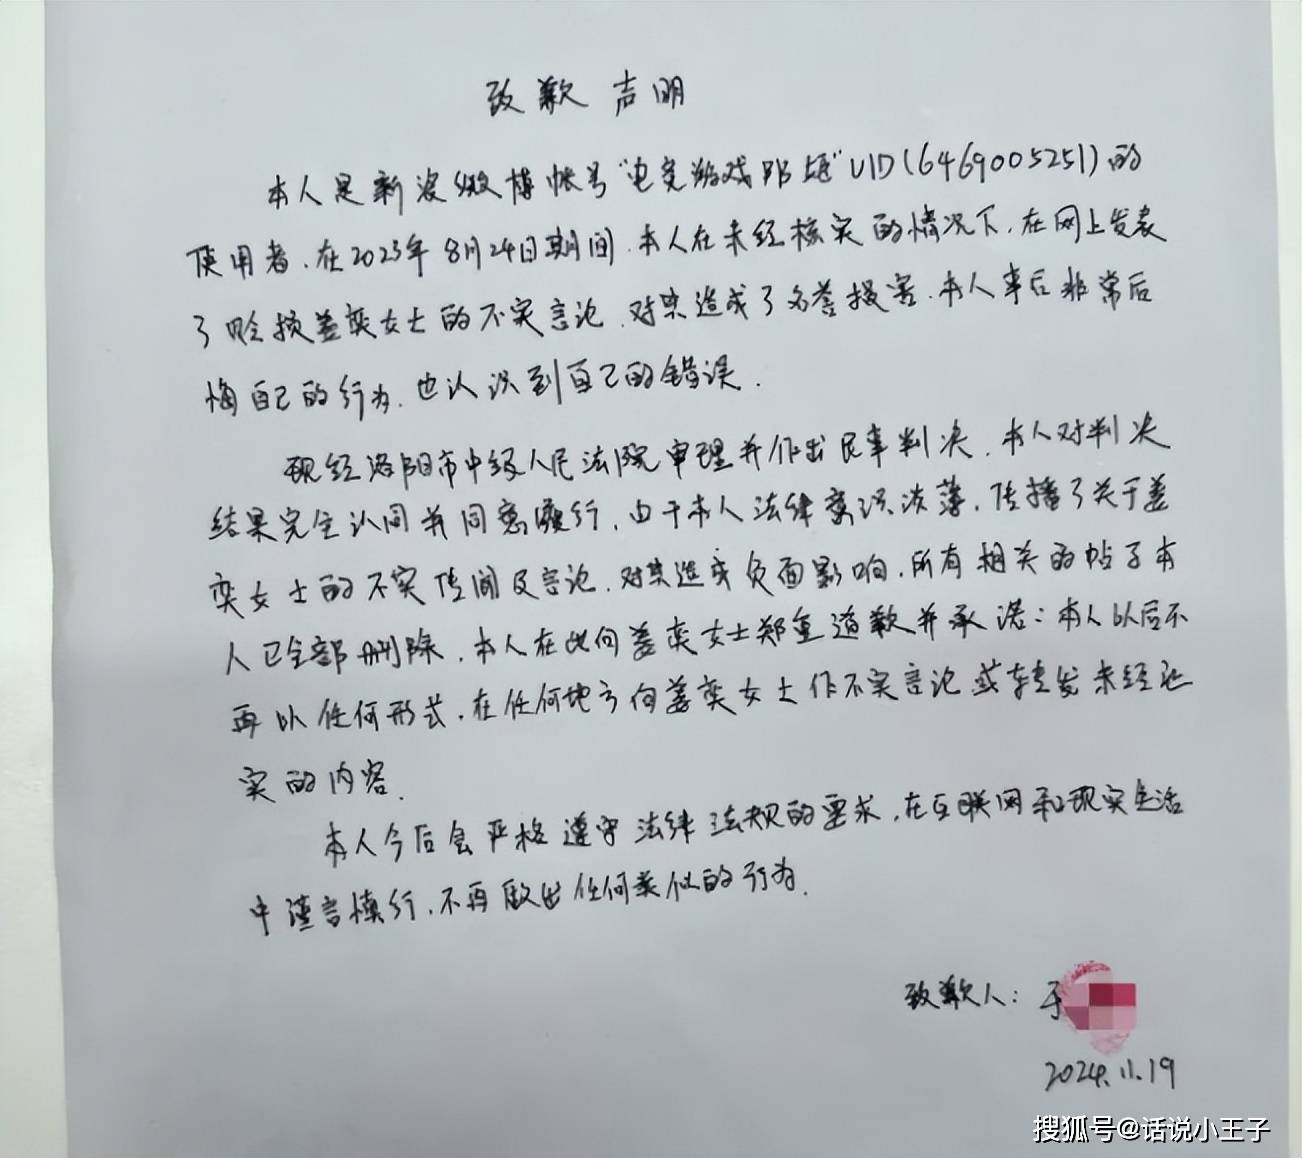 致歉声明
本人是新浪微博帐号“电竞游戏那些”UID(6469005251)的
使用者,在2023年8月24日期间,本人在未经核实的情况下,在网上发表
了贬损姜奕女士的不实言论,对其造成了名誉损害,本人事后非常后
悔自己的行为,也认识到自己的错误.
现经洛阳市中级人民法院审理并作出民事判决,本人对判决
结果完全认同并同意履行,由于本人法律意识淡薄,传播了关于姜
奕女士的不实传闻及言论,对其造成负面影响,所有相关的帖子本
人已全部删除,本人在此向姜奕女士郑重道歉并承诺:本人以后不
再以任何形式,在任何地方向姜奕女士作不实言论或转发未经证
实的内容.
本人今后会严格遵守法律法规的要求,在互联网和现实生活
中谨言慎行,不再做出任何类似的行为.
致歉人:于
2024.11.19
搜狐号@话说小王子